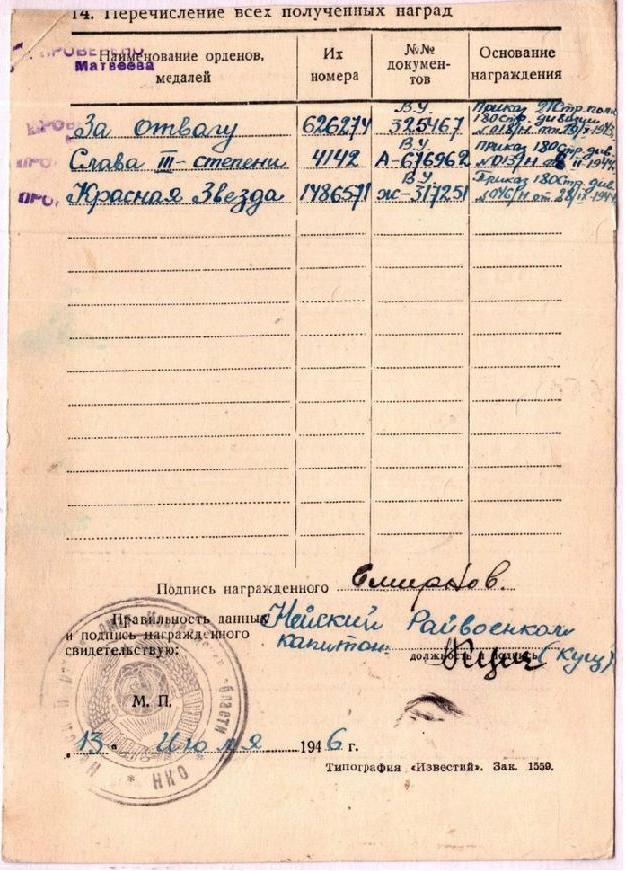 14. Перечисление всех полученных наград
ПРОВЕРЕНО
Матвеева
Наименование орденов, медалей
Их номера
№№ докумен-тов
Основание награждения
За отвагу 626274 В.У. 325467 Приказ стр. полка 180 стр. дивизии
Слава III-степени 4142 В.У. А-676962 Приказ 180 стр. див. №013/н от
Красная Звезда 1486571 В.У. ж-317251 Приказ 180 стр. див. №046/н от 28/IX-1944
Подпись награжденного Смирнов.
Правильность данных
и подпись награжденного
свидетельствую:
Нейский Райвоенком
капитан
(Кущ)
должность подпись
М. П.
"13" Июля 1946 г.
Типография «Известий». Зак. 1559.